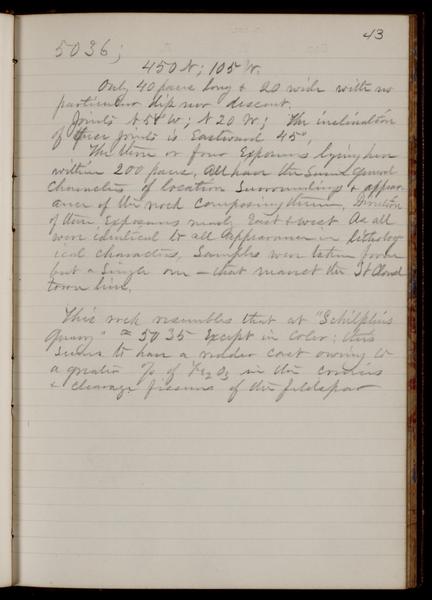 43
5036;
450 N; 105 W.
Only 40 paces long & 20 wide with no
particular dip nor descent.
Joints N 5° W; N 20 W; The inclination
of these joints is Eastward 45°,
The three or four Exposures lying here
within 200 paces, All have the same general
characters of location Surroundings & appear-
ance of the rock composing them, Direction
of these Exposures nearly East & west As all
were identical to all appearance in litholog-
ical characters, Samples were taken from
but a single one – that nearest the St Cloud
town line.
This rock resembles that at "Schilplin's
Quarry" = 5035 Except in color: this
seems to have a redder cast owing to
a greater % of Fe2O3 in the crevices
& cleavage fissures of the feldspar